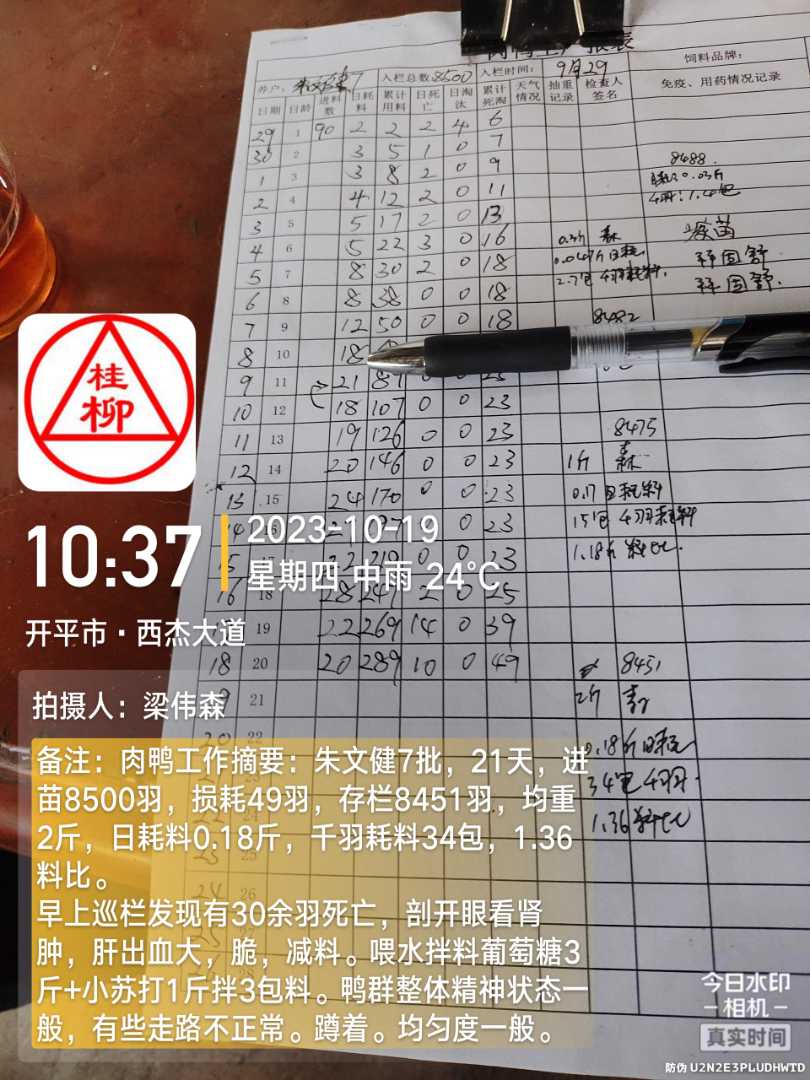 养户: 朱文健7 入栏总数 8500 入栏时间: 9月29 饲料品牌:
日期 日龄 进料数 日耗料 累计用料 日死亡 日淘汰 累计死淘 天气情况 抽重记录 检查人签名 免疫、用药情况记录
29 1 90 2 2 2 4 6
30 2 3 5 1 0 7
1 3 3 8 2 0 9 8488
2 4 4 12 2 0 11
3 5 5 17 2 0 13
4 6 5 22 3 0 16 森 疫苗
5 7 8 30 2 0 18
6 8 8 38 0 0 18
7 9 12 50 0 0 18 8482
8 10 18
9 11 21 0 23
10 12 18 107 0 0 23
11 13 19 126 0 0 23 8475
12 14 20 146 0 0 23 1斤 森
13 15 24 170 0 0 23 0.17 日耗料
14 16 0 0 23 15包 千羽耗料
15 17 0 0 23 1.18斤 料比.
16 18 28 247 2 0 25
19 22 269 14 0 39
18 20 20 289 10 0 49 8451
21 2斤
22 0.18斤日耗
34包千羽.
1.36料比
25
26
28
桂
柳
10:37
2023-10-19
星期四 中雨 24℃
开平市·西杰大道
拍摄人：梁伟森
备注：肉鸭工作摘要：朱文健7批，21天，进
苗8500羽，损耗49羽，存栏8451羽，均重
2斤，日耗料0.18斤，千羽耗料34包，1.36
料比。
早上巡栏发现有30余羽死亡，剖开眼看肾
肿，肝出血大，脆，减料。喂水拌料葡萄糖3
斤+小苏打1斤拌3包料。鸭群整体精神状态一
般，有些走路不正常。蹲着。均匀度一般。
今日水印
相机
真实时间
防伪 U2N2E3PLUDHWTD